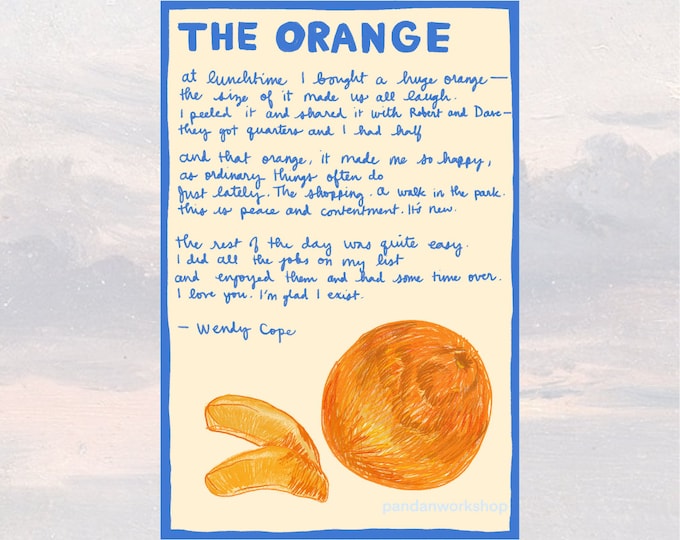 THE ORANGE
at lunchtime I bought a huge orange—
the size of it made us all laugh.
I peeled it and shared it with Robert and Dave—
they got quarters and I had half
and that orange, it made me so happy,
as ordinary things often do
just lately. The shopping. a walk in the park.
this is peace and contentment. It's new.
the rest of the day was quite easy.
I did all the jobs on my list
and enjoyed them and had some time over.
I love you. I'm glad I exist.
— Wendy Cope
pandanworkshop